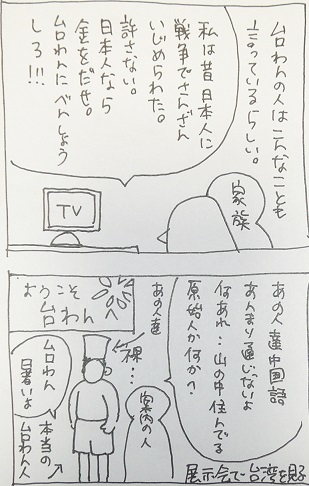 台わんの人はこんなことも
言っているらしい。
私は昔日本人に
戦争でさんざん
いじめられた。
許さない。
日本人なら
金をだせ。
台わんにべんしょう
しろ!!!
家族
TV
あの人達中国語
あんまり通じないよ
何あれ…山の中住んでる
原始人か何か?
案内の人
あの人達
裸…
ようこそ
台わんへ
台わん
暑いよ
本当の
台わん人
展示会で台湾を見る